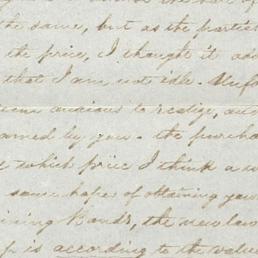 the same, but as the parties
the price, I thought it ad
that I am not idle. Unfo
anxious to realize, an
by you. the purcha
which price I think a
some hopes of obtaining your
ining Bonds, the new law
is according to the value